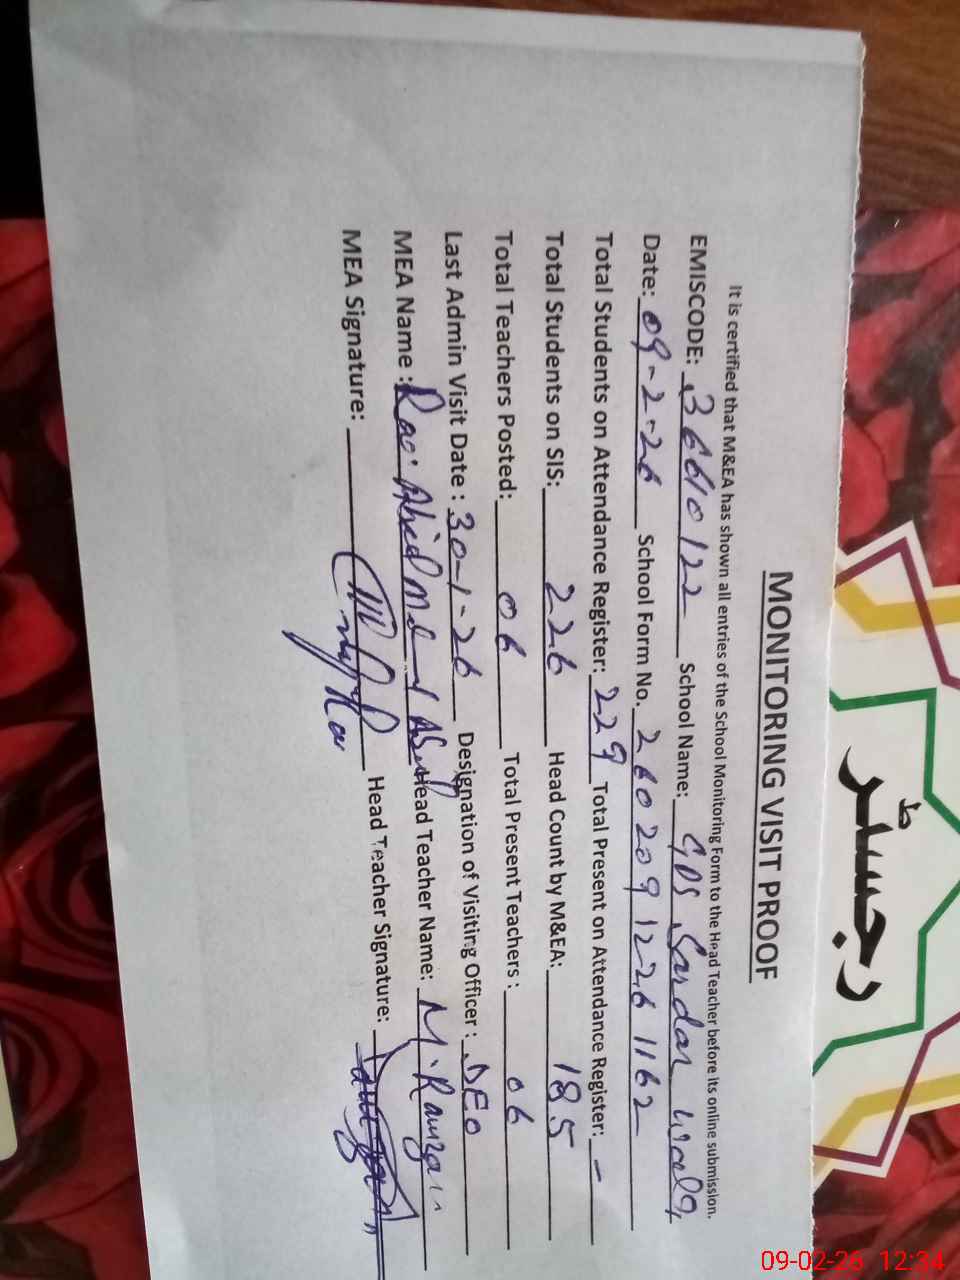 MONITORING VISIT PROOF
It is certified that M&EA has shown all entries of the School Monitoring Form to the Head Teacher before its online submission.
EMISCODE: 36610122 School Name: GPS Sardar Wala
Date: 09-2-26 School Form No. 2602091226 1162
Total Students on Attendance Register: 229 Total Present on Attendance Register: -
Total Students on SIS: 226 Head Count by M&EA: 185
Total Teachers Posted: 06 Total Present Teachers : 06
Last Admin Visit Date : 30-1-26 Designation of Visiting Officer : DEO
MEA Name : Rao Abid Head Teacher Name: M. Ramzan
MEA Signature: Head Teacher Signature:
رجسٹر
09-02-26 12:34